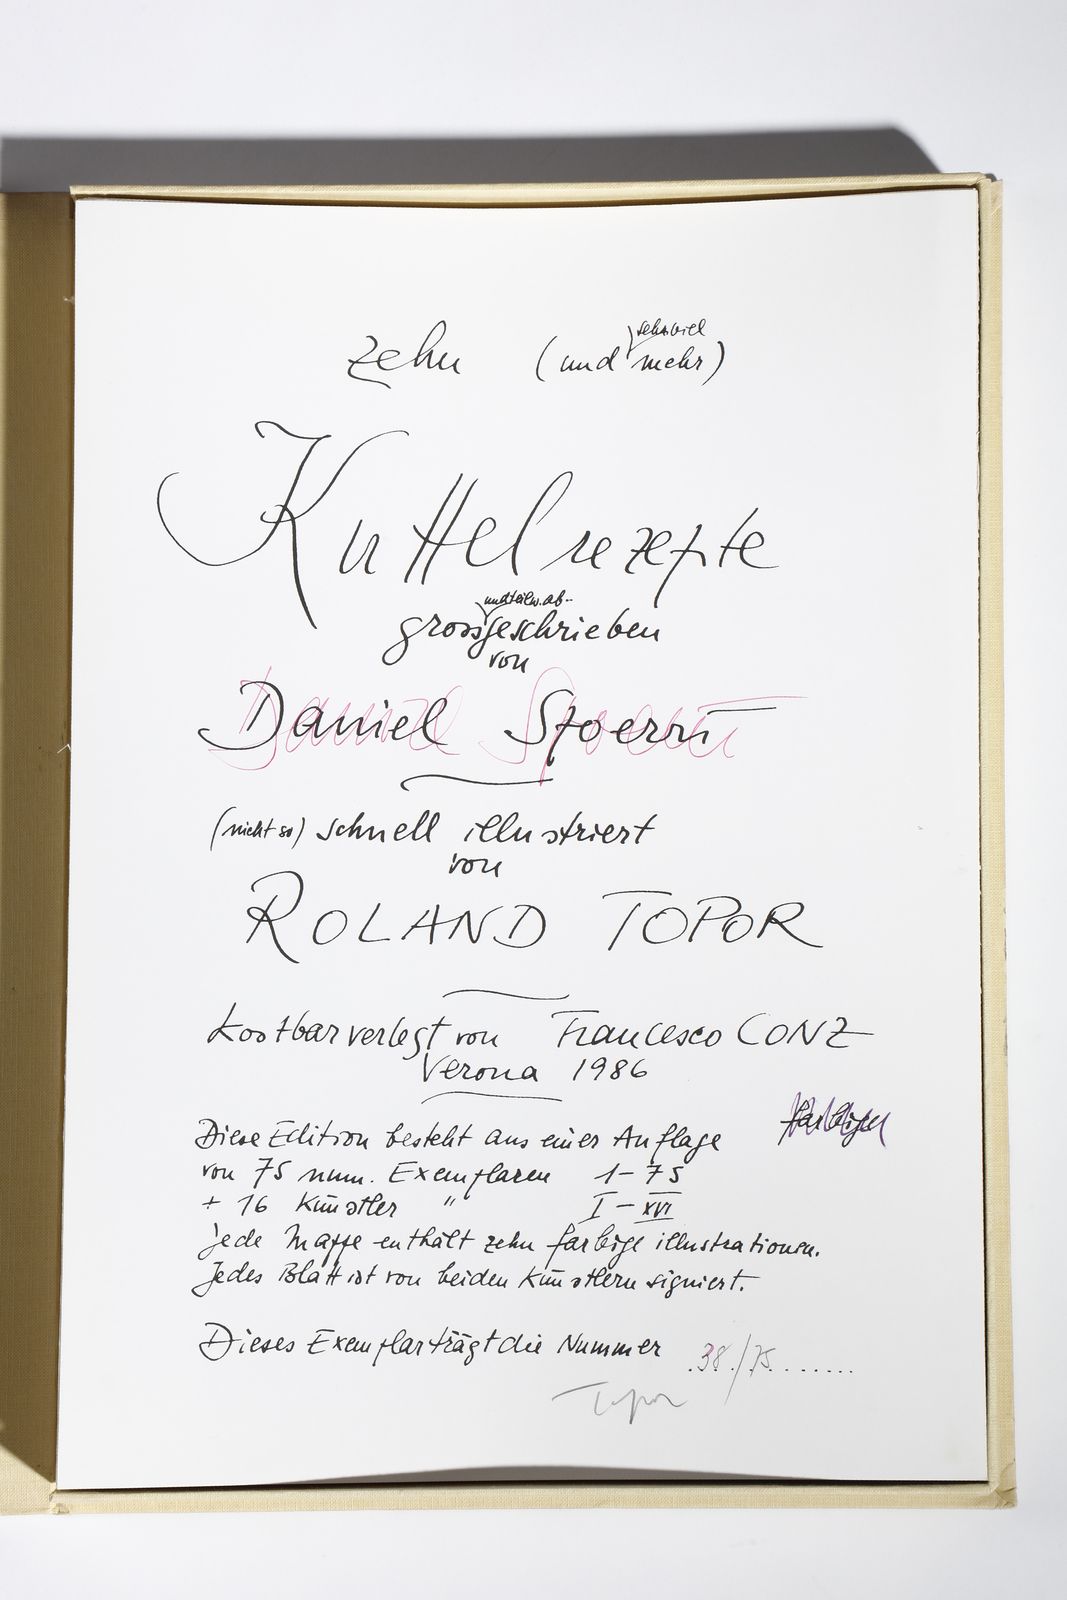 zehn (und sehr viel mehr)
Kuttelrezepte
und teilw. ab-
grossgeschrieben
von
Daniel Spoerri
Daniel Spoerri
(nicht so) schnell illustriert
von
ROLAND TOPOR
kostbar verlegt von Francesco CONZ
Verona 1986
farbige
Diese Edition besteht aus einer Auflage
von 75 num. Exemplaren 1-75
+ 16 Künstler " I - XVI
jede Mappe enthält zehn farbige illustrationen.
Jedes Blatt ist von beiden Künstlern signiert.
Dieses Exemplar trägt die Nummer 38/75.......
Topor